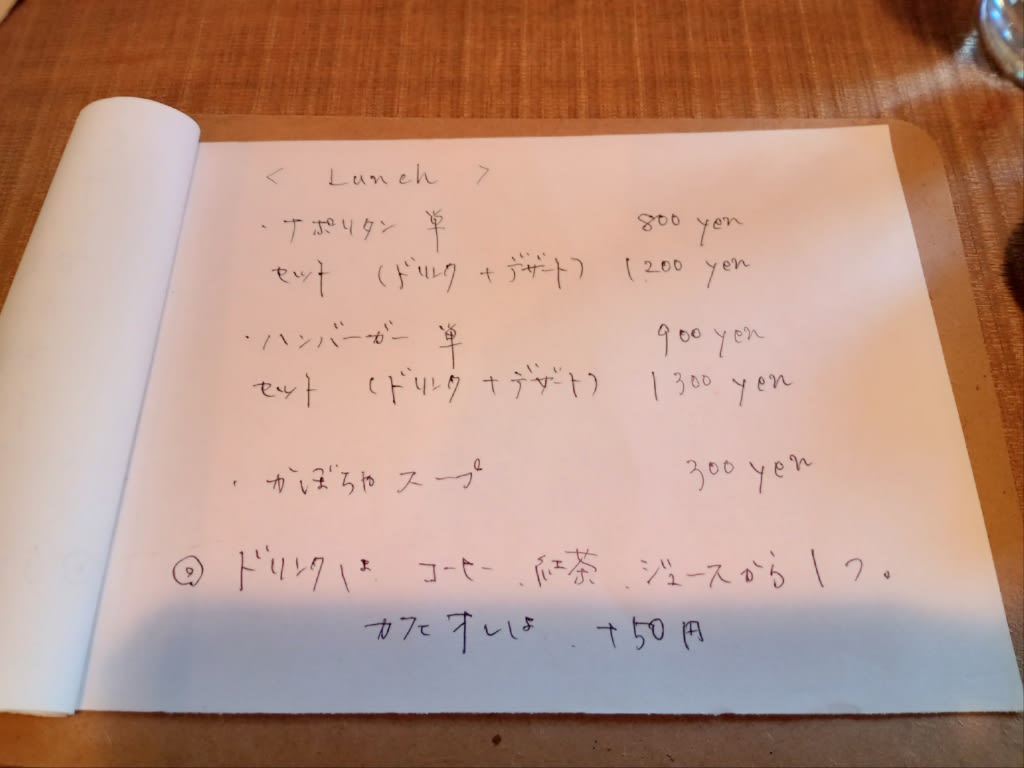 < Lunch >
・ナポリタン 単 800 yen
セット (ドリンク + デザート) 1200 yen
・ハンバーガー 単 900 yen
セット (ドリンク + デザート) 1300 yen
・かぼちゃ スープ 300 yen
◎ ドリンクは コーヒー、紅茶、ジュースから1つ。
カフェオレは、+50円